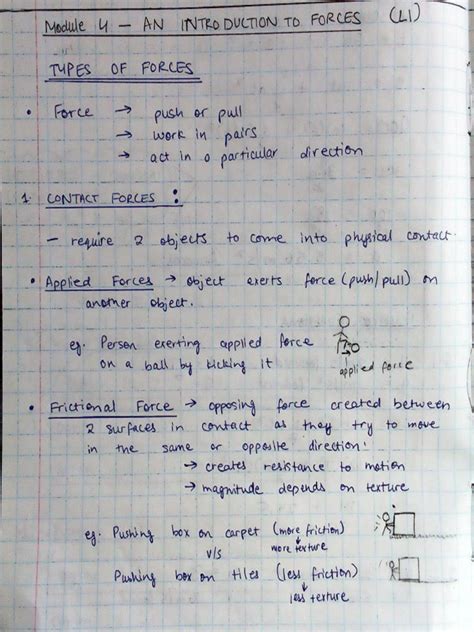 Module 4 - AN INTRODUCTION TO FORCES (L1)
TYPES OF FORCES
• Force → push or pull
→ work in pairs
→ act in a particular direction
1. CONTACT FORCES :
- require 2 objects to come into physical contact.
• Applied Forces → object exerts force (push/pull) on
another object.
eg. Person exerting applied force
on a ball by kicking it
applied force
• Frictional Force → opposing force created between
2 surfaces in contact as they try to move
in the same or opposite direction!
→ creates resistance to motion
→ magnitude depends on texture
eg. Pushing box on carpet (more friction)
v/s more texture
Pushing box on tiles (less friction)
less texture